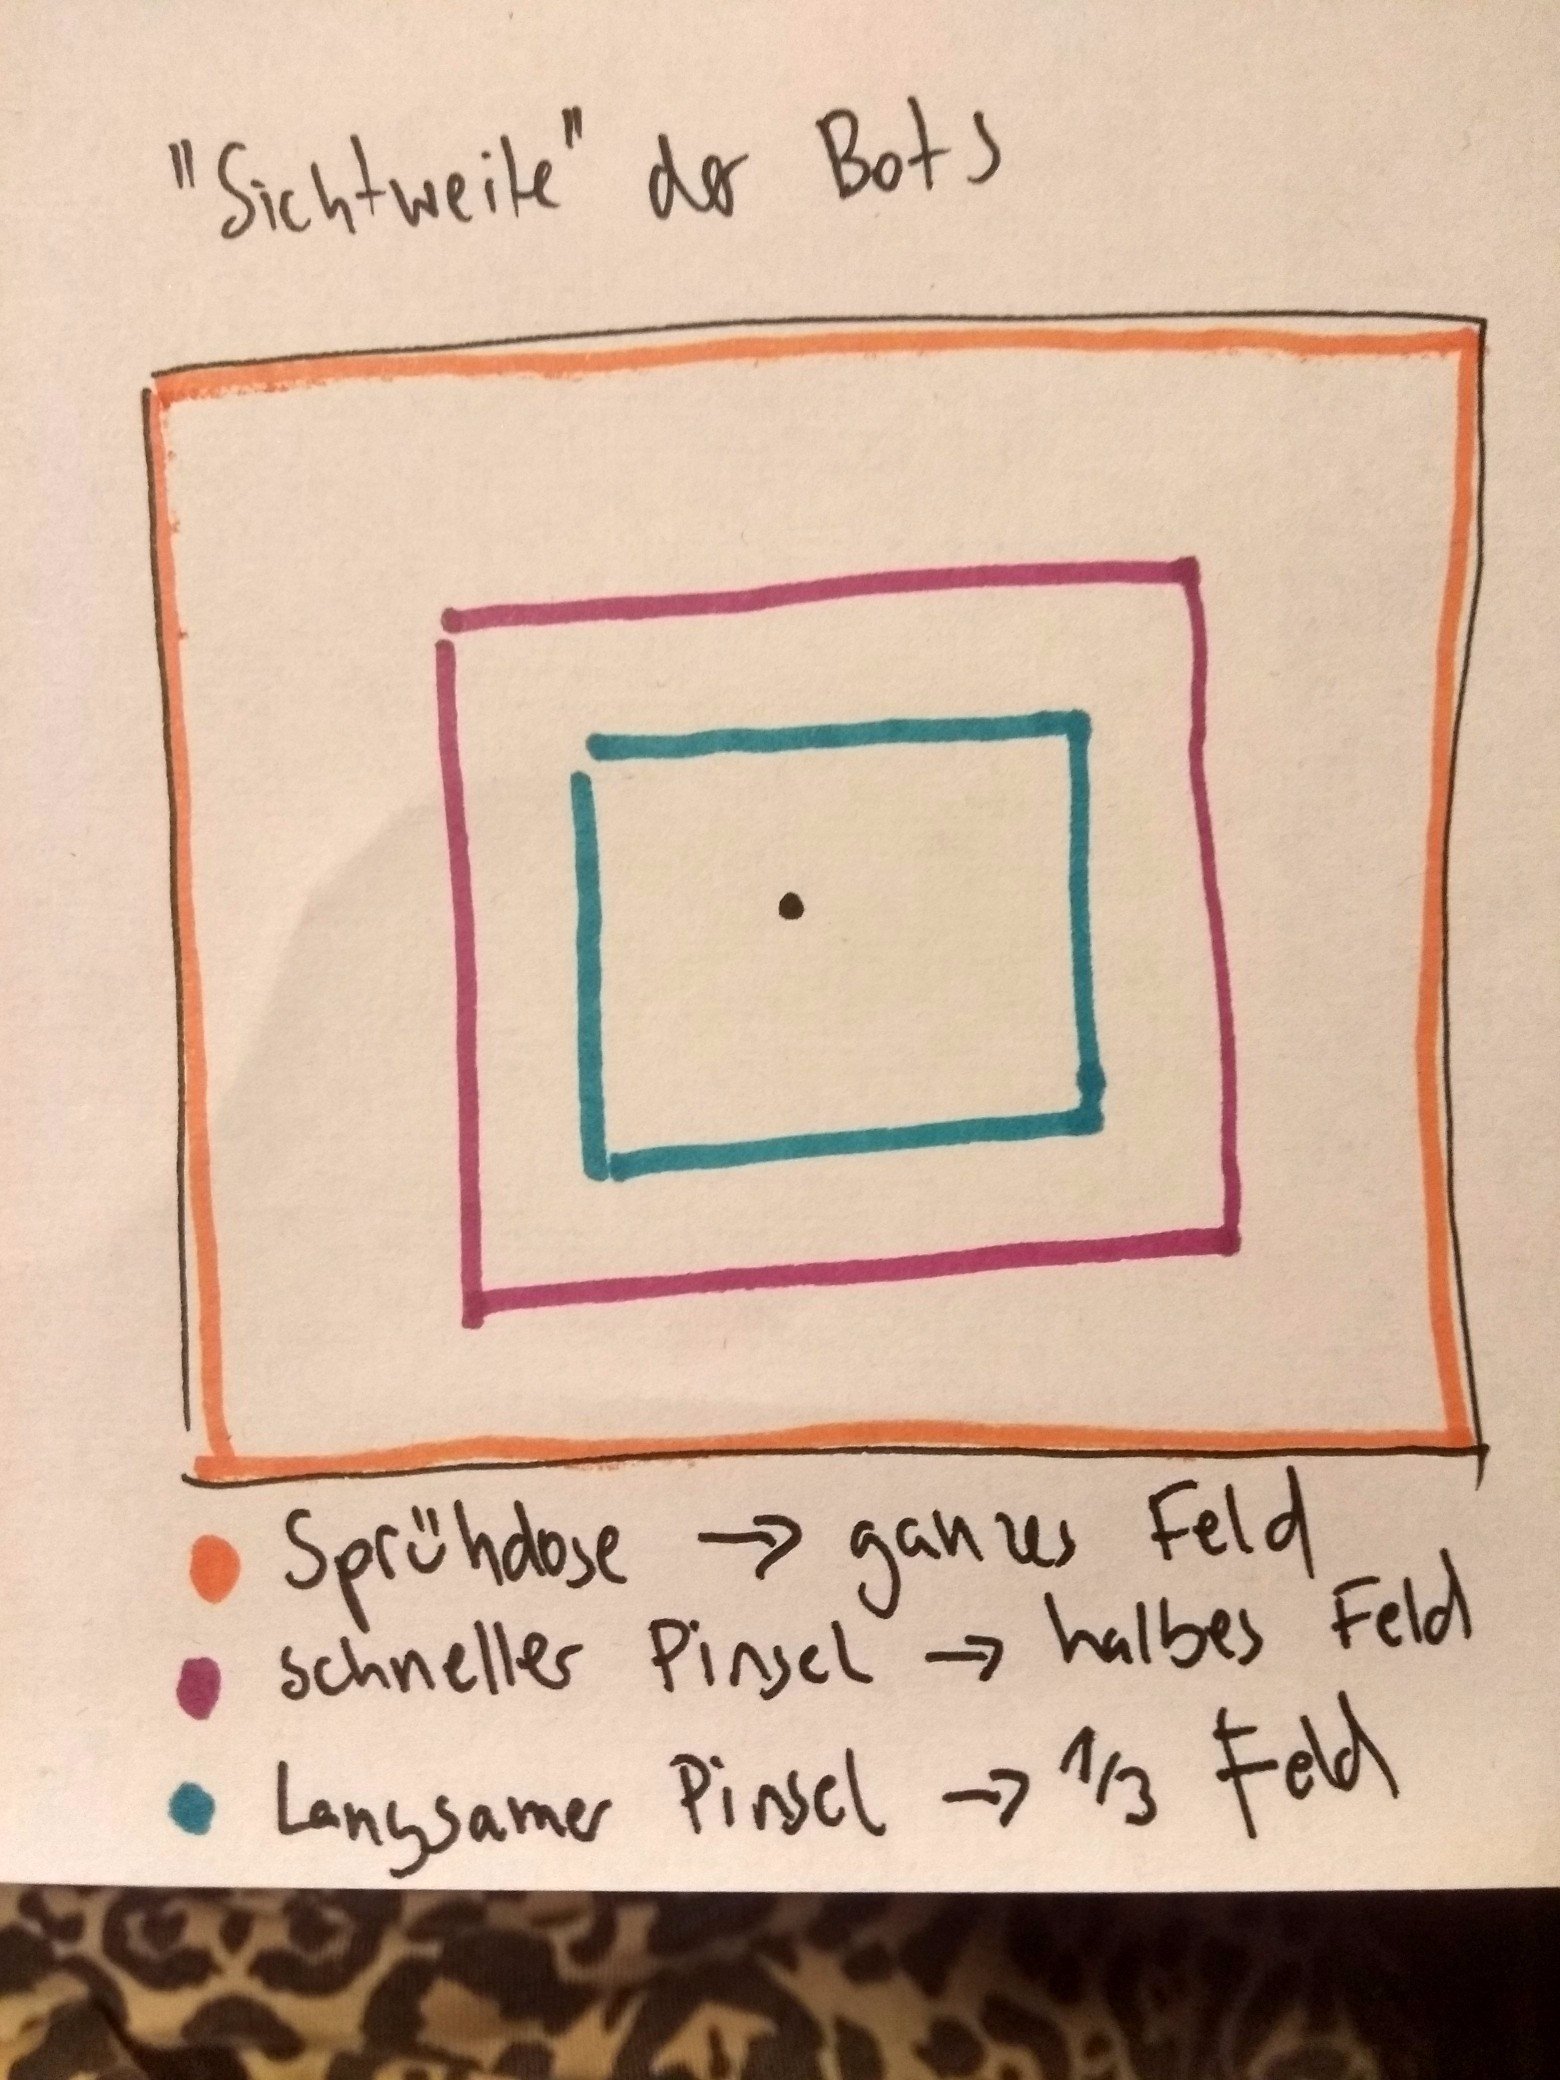 "Sichtweite" der Bots
Sprühdose → ganzes Feld
schneller Pinsel → halbes Feld
Langsamer Pinsel → 1/3 Feld